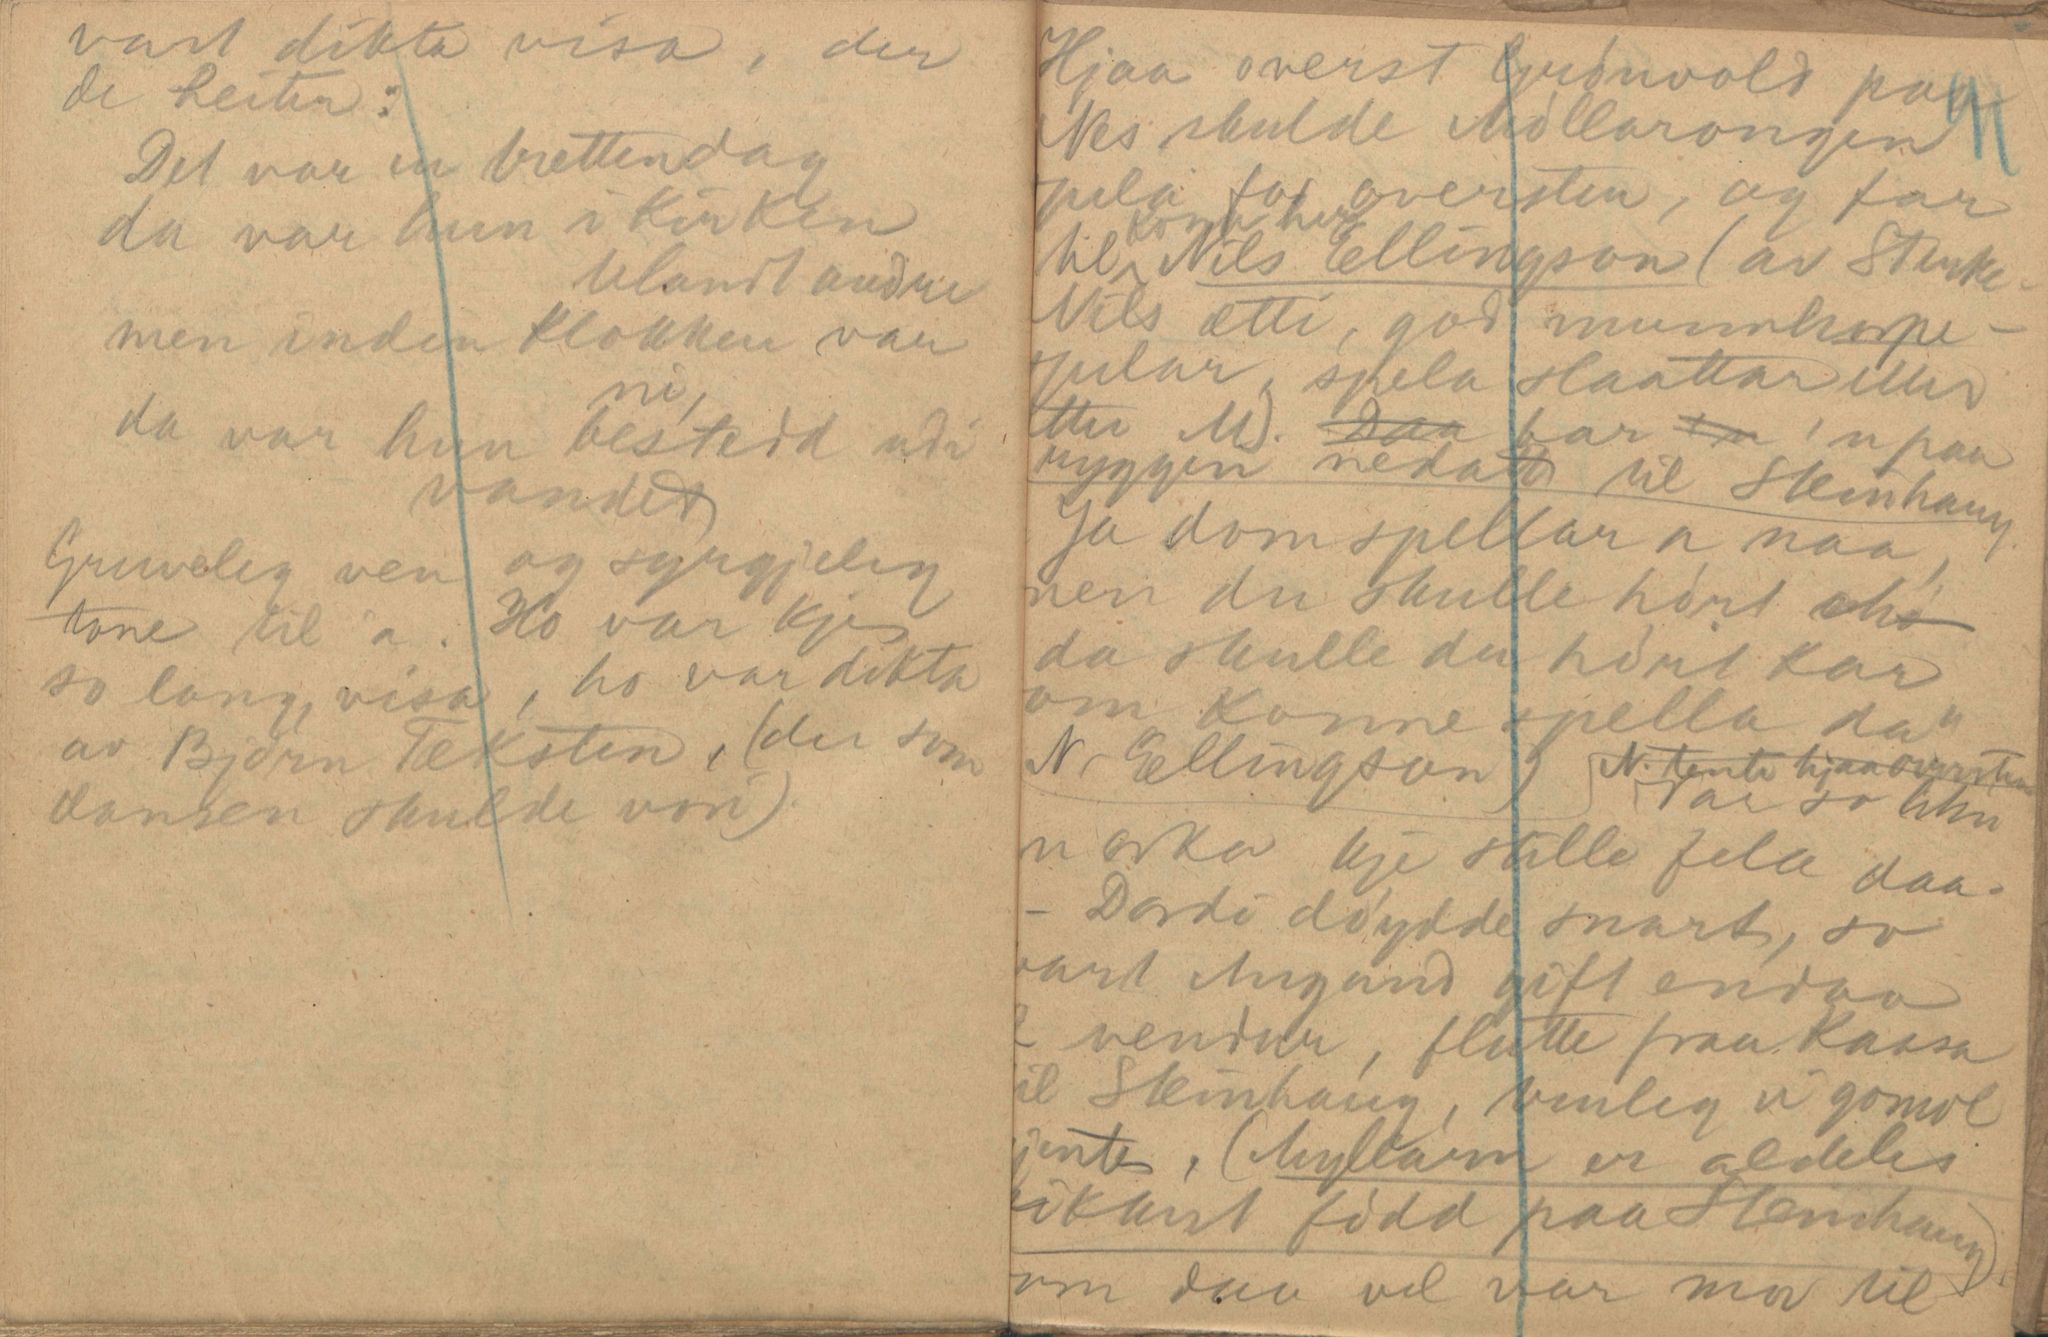 vart dikta visa, der
de heiter:
Det var en trettendag
da var hun i kirken
blandt andre
men inden klokken var
ni,
da var hun bestedd udi
vandet
Gruveleg ven og syrgjeleg
tone til 'a. Ho var kje
so lang, visa, ho var dikta
av Björn Teksten, (der som
dansen skulde vori).
Hjaa overst Grönvold paa
91
Nes skulde Möllarongen
spela for oversten, og far
kom her
til Nils Ellingson (av Sterke-
Nils ætti, god munnharpe-
spelar, spela slaattar etter
etter M). Daa bar en 'n paa
ryggen nedatt til Steinhaug.
Ja dom spellar a naa,
men du skulle hört
da skulle du hört kar
om konne spella da"
N. Ellingson)
N. tente hjaa oversten
Var so
'n orka kje stille fela daa.
- Dordi döydde snart, so
vart Mygand gift endaa
vendur, flutte fraa Kaasa
til Steinhaug, venleg ei gomol
gjente, (Myllarn er aldeles
sikkert född paa Steinhaug).
om daa vel var mor til